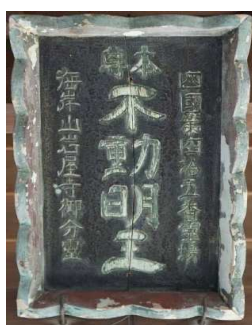 四國第四拾五番霊場
本尊
不動明王
海岸山岩屋寺御分霊